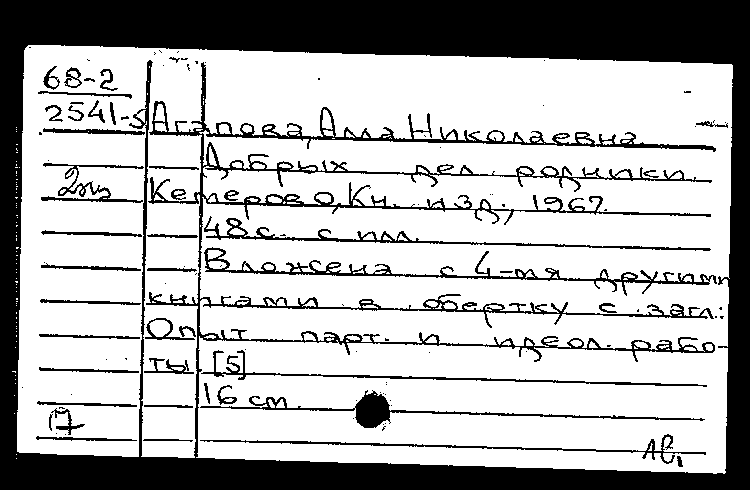 68-2
2541-5 Агапова, Алла Николаевна
Добрых дел родники.
2 экз Кемерово, Кн. изд., 1967.
48 с. с илл.
Вложена с 4-мя другими
книгами в обертку с загл.:
Опыт парт. и идеол. рабо-
ты. [5]
16 см.